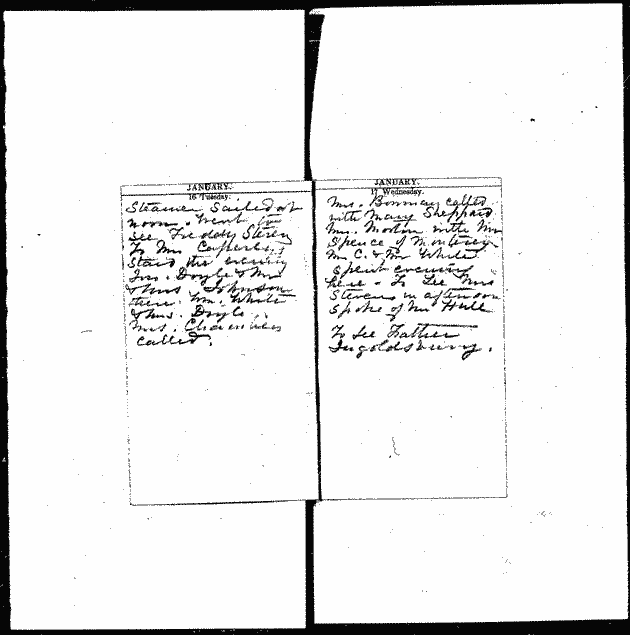 JANUARY.
16 Tuesday.
Steamer Sailed at
noon. Went to
see Freddy
To Mr Casserly's
Staid the evening
Jno. Doyle & Mr
& Mrs. Johnson
there. Mr. White
& Mrs. Doyle.
Mrs.
called.
JANUARY.
17 Wednesday.
Mrs. Bowman called
with Mary Sheppard
Mrs. Morton with Mr
Spence of Monterey
Mr C. & Mr White
spent evening
here. To See Mrs
Stevens in afternoon
Spoke of Mr Hall
To See Father
Ingoldsburg.